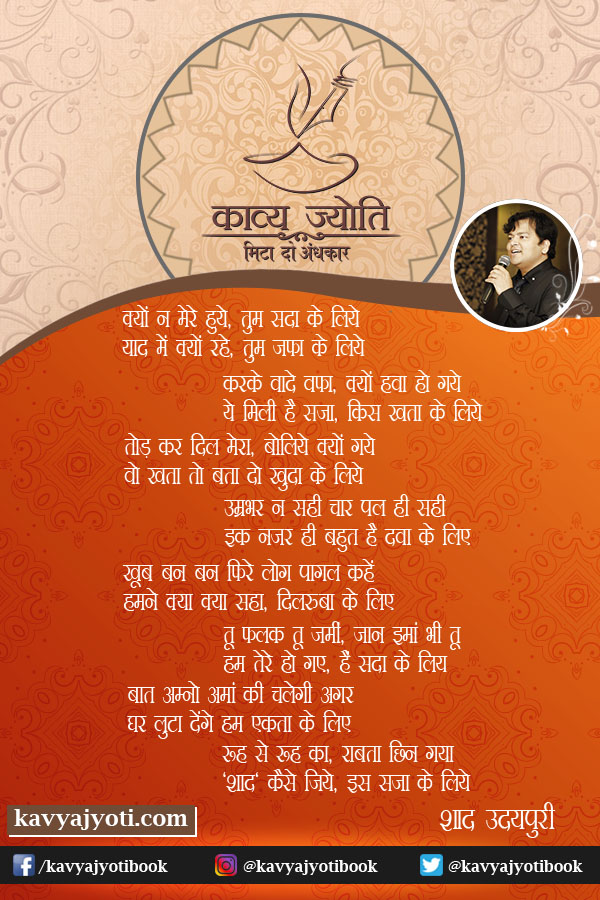 काव्य ज्योति
मिटा दो अंधकार
क्यों न मेरे हुये, तुम सदा के लिये
याद में क्यों रहे, तुम जफा के लिये
करके वादे वफा, क्यों हवा हो गये
ये मिली है सजा, किस खता के लिये
तोड़ कर दिल मेरा, बोलिये क्यों गये
वो खता तो बता दो खुदा के लिये
उम्रभर न सही चार पल ही सही
इक नजर ही बहुत है दवा के लिए
खूब बन बन फिरे लोग पागल कहें
हमने क्या क्या सहा, दिलरुबा के लिए
तू फलक तू जमीं, जान इमां भी तू
हम तेरे हो गए, हैं सदा के लिय
बात अम्नो अमां की चलेगी अगर
घर लुटा देंगे हम एकता के लिए
रूह से रूह का, राबता छिन गया
'शाद' कैसे जिये, इस सजा के लिये
शाद उदयपुरी
kavyajyoti.com
/kavyajyotibook @kavyajyotibook @kavyajyotibook